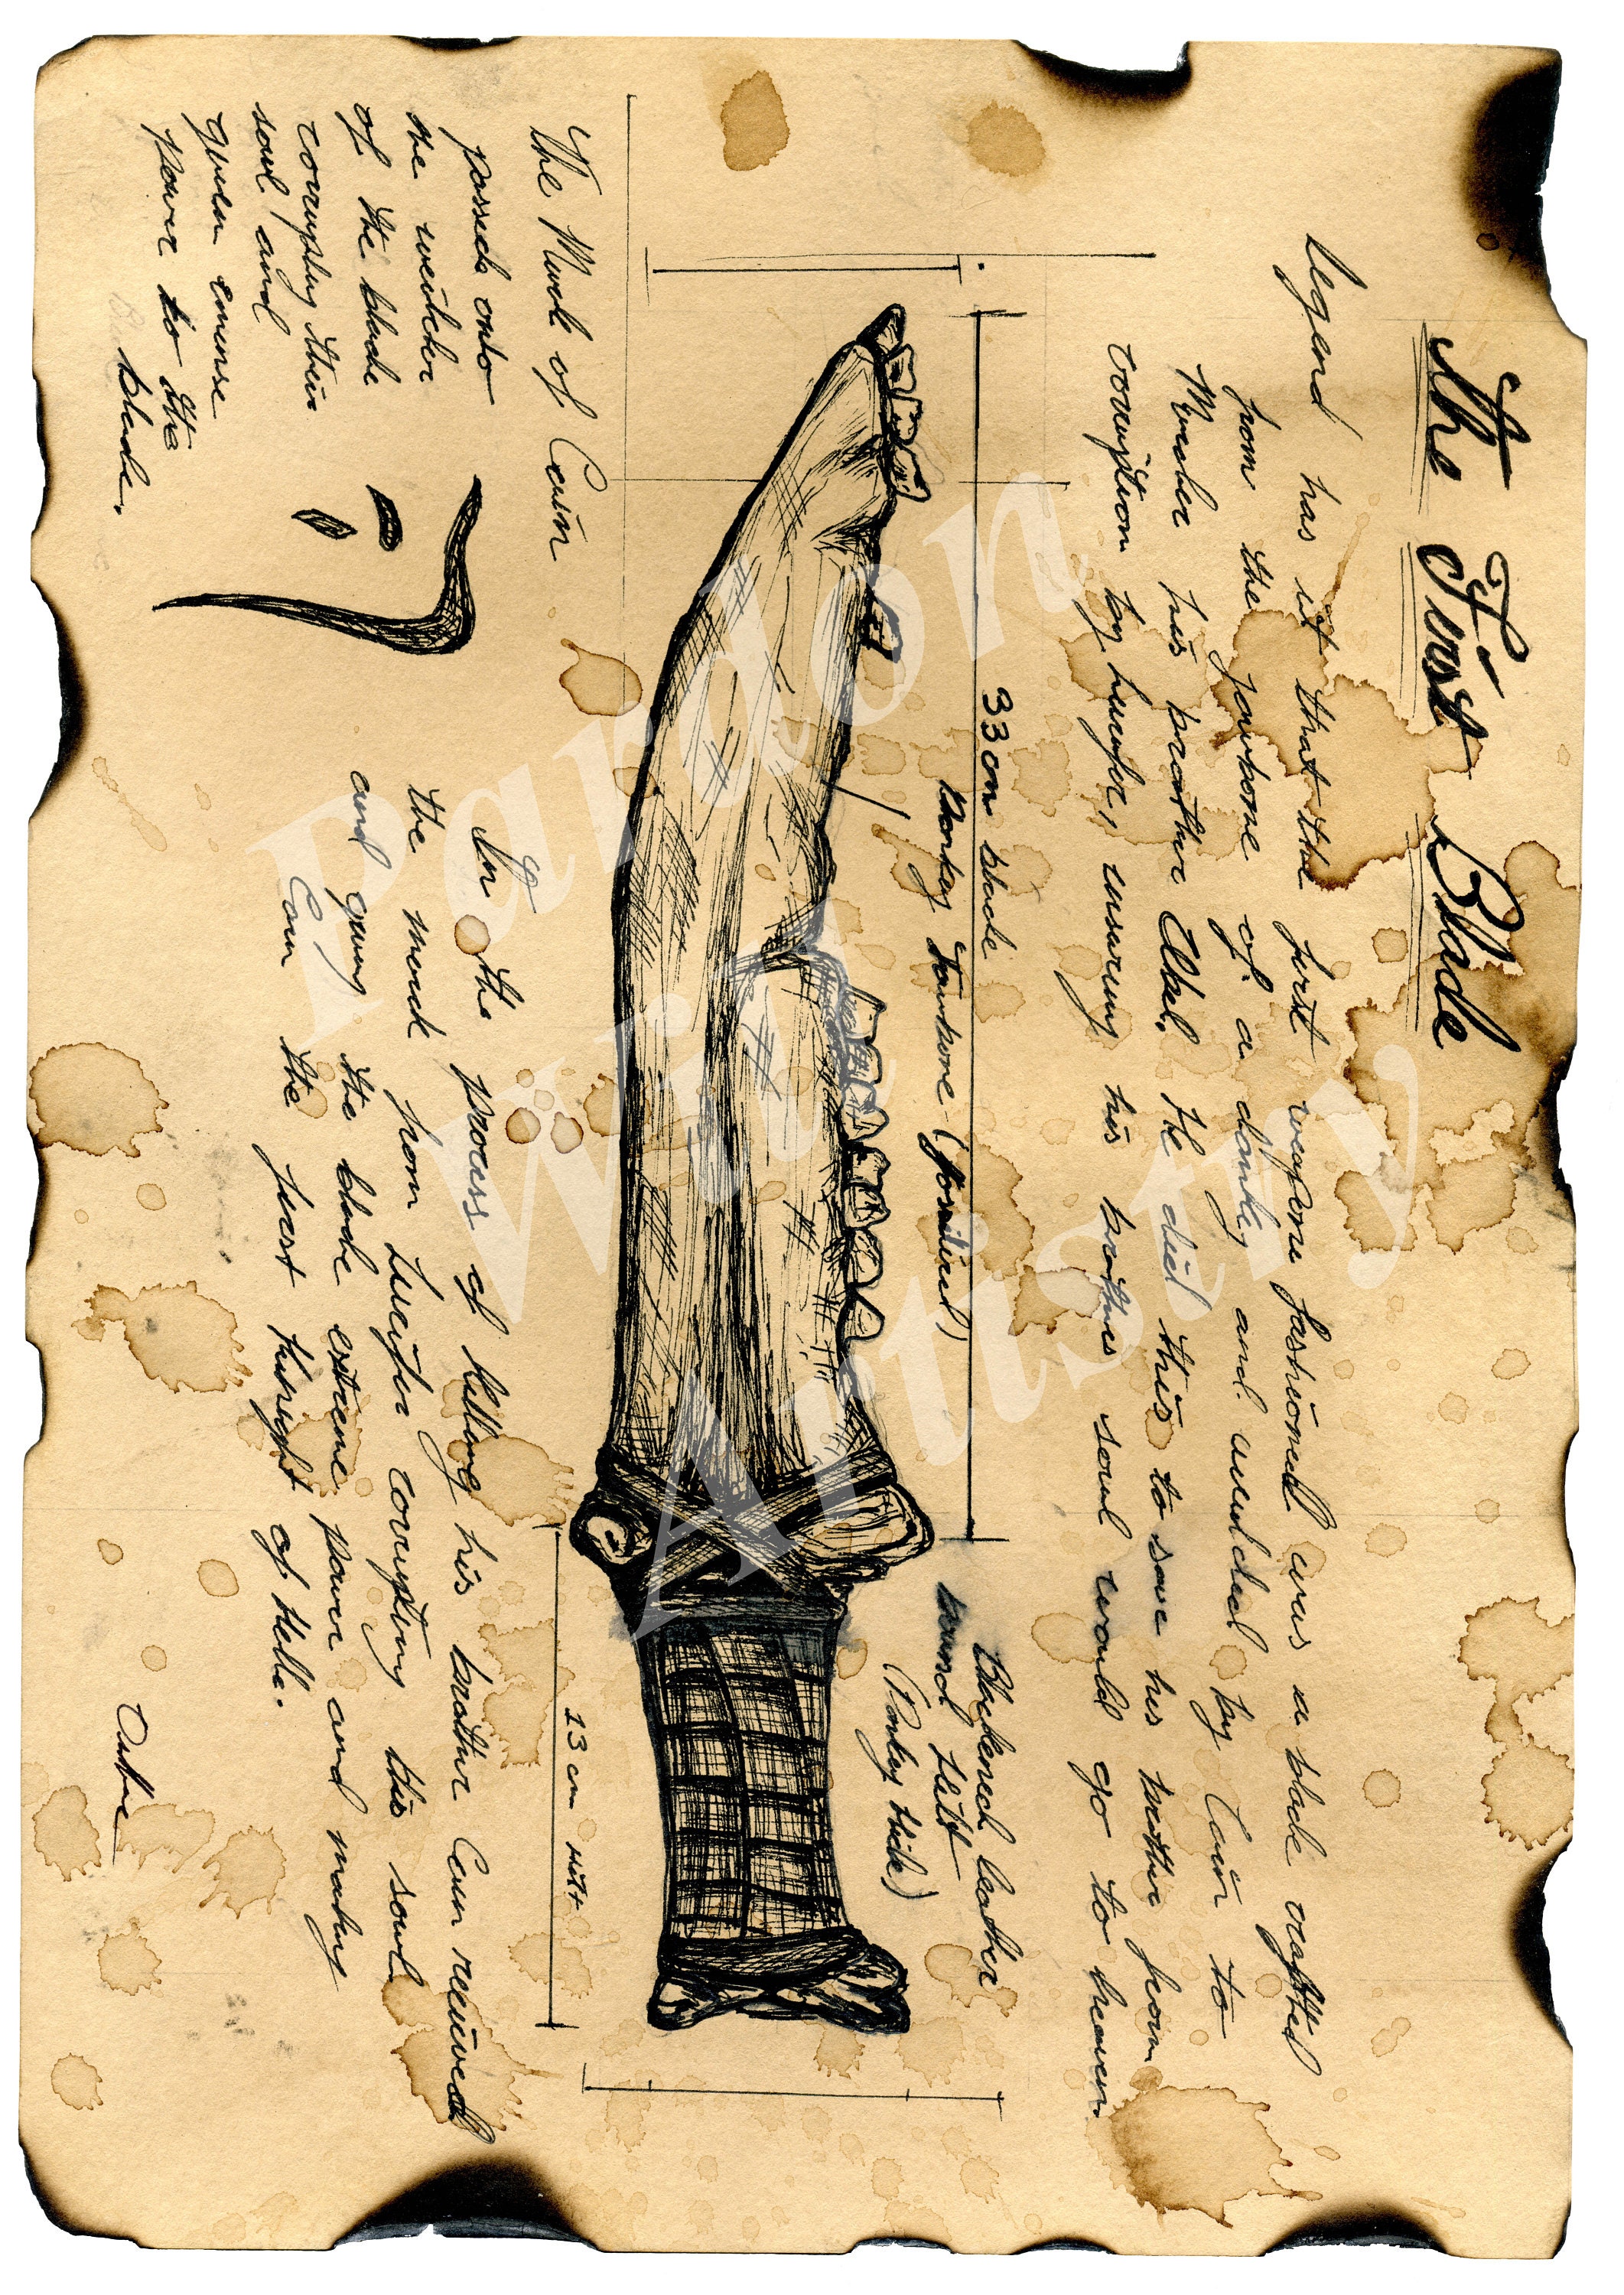 The First Blade
Legend has it that the first weapone fashioned was a blade crafted
from the jawbone of a donkey and weilded by Cain to
Murder his brother Abel. He did this to save his brother from
corruption by lucifer, insuring his brothers soul would go to heaven
33cm blade
Donkey Jawbone (fossilized)
Blackened leather
bound Hilt
(Donkey hide)
13 cm Hilt
The Mark of Cain
passeds onto
the weilder
of the blade
corrupting their
soul and
given emense
power to the
blade.
In the process of killing his brother Cain recieved
the mark from Lucifer corrupting this soul
and giving the blade extreme power and making
Cain the first Knight of Hell.
Pardon
Wild
Artistry